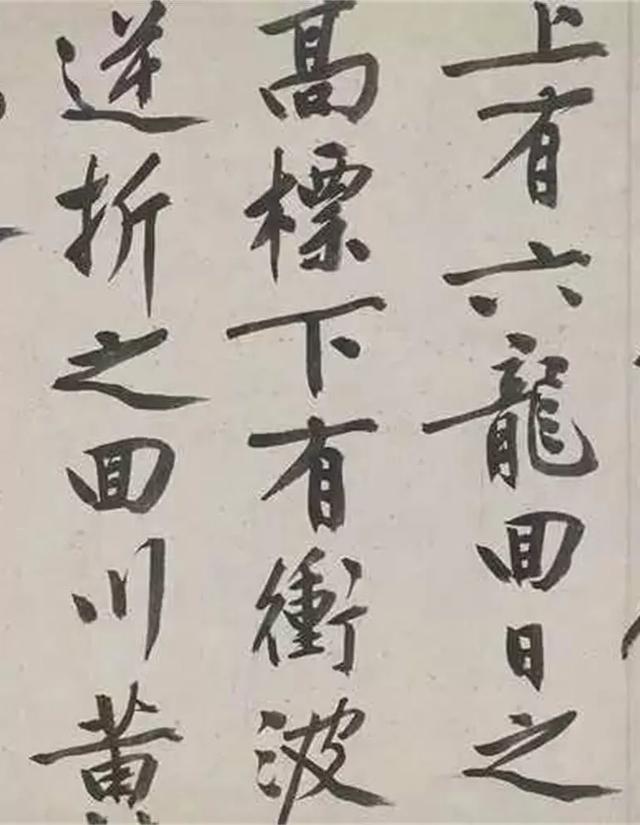 上有六龍回日之
高標下有衝波
逆折之回川黄